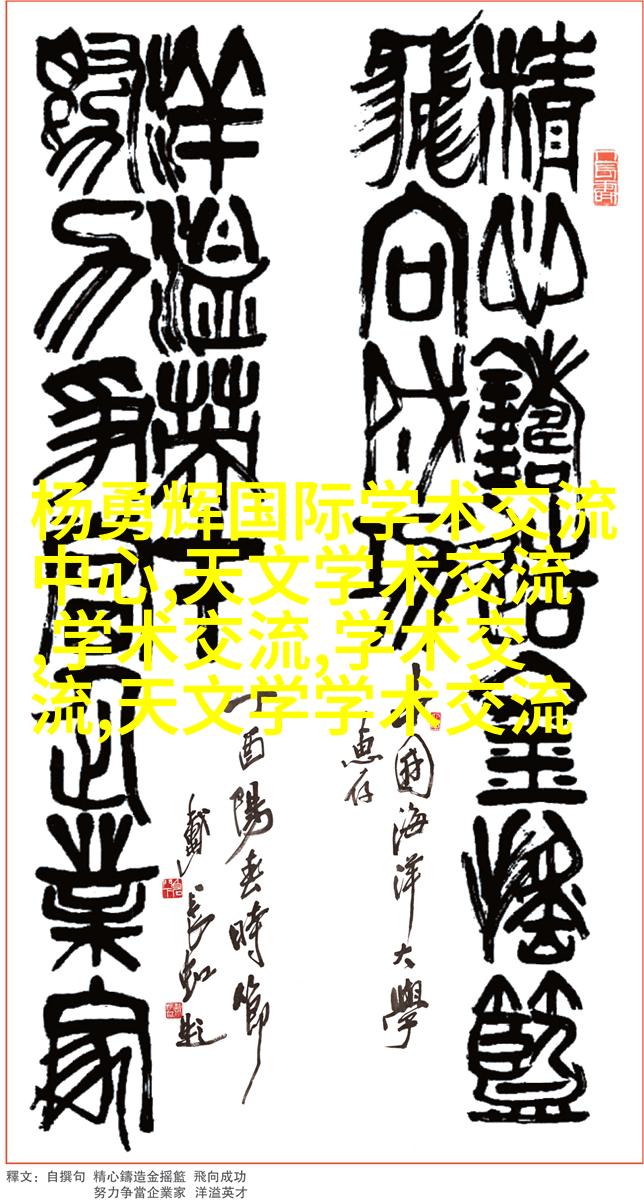 精心鑄造金摇籃
飛向成功
中國海洋大學
惠存
努力争當企業家
洋溢英才
丁酉陽春時節
戴長虹題
杨勇辉国际学术交流
中心,天文学术交流
,学术交流,学术交
流,天文学学术交流
釋文：自撰句 精心鑄造金摇籃 飛向成功
努力争當企業家 洋溢英才